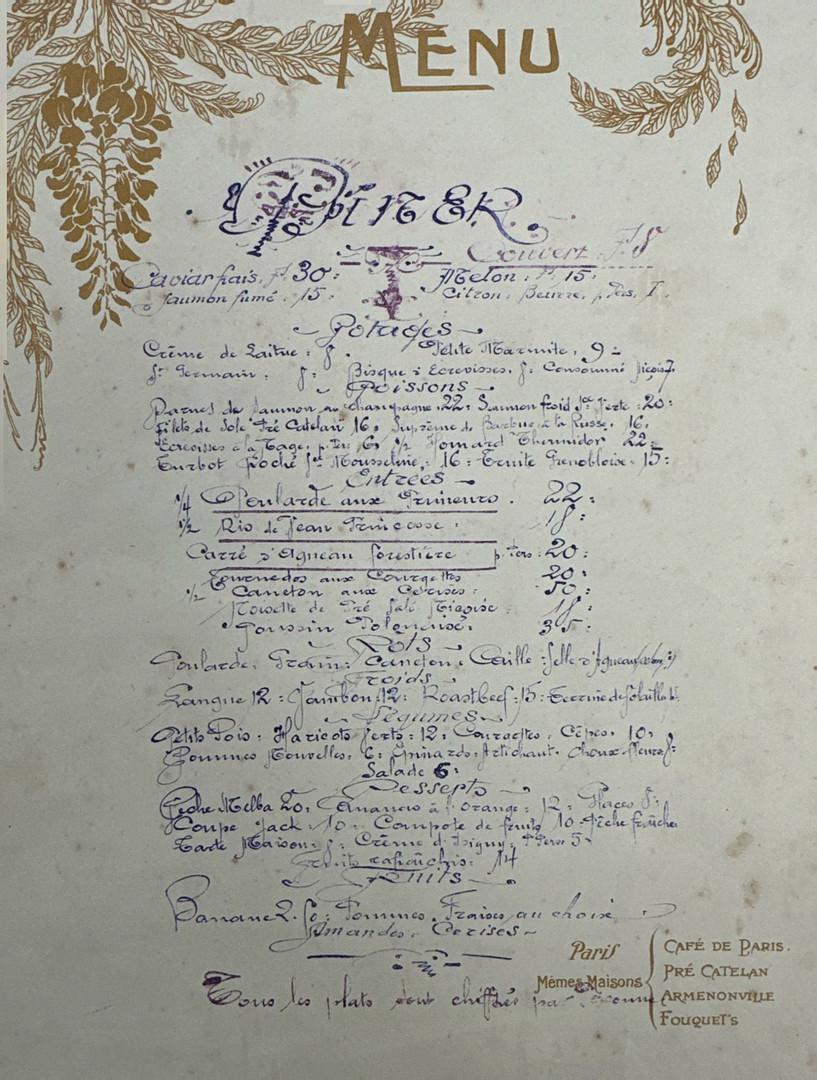 MENU
DINER
Couvert. F. 8
Caviar frais, F. 30: Melon: F. 15:
Saumon fumé: 15: Citron, Beurre, p. Pers, 1.
Potages
Crème de Laitue: 8. Petite Marmite, 9
St Germain. 8: Bisque d'Ecrevisses. 8: Consommé Niçois 7.
Poissons
Darnes de Saumon au champagne: 22: Saumon froid Sce Verte: 20:
Filets de Sole Pré Catelan 16, Suprême de Barbue à la Russe, 16,
Ecrevisses à la Nage, p. Pers 6, 1/2 Homard Thermidor 22:
Turbot Poché Sce Mousseline: 16: Truite Grenobloise. 15:
Entrées
1/4 Poularde aux Primeurs. 22:
1/2 Ris de Jean Princesse. 18:
Carré d'Agneau forestière p. Pers: 20:
Tournedos aux Courgettes 20:
1/2 Caneton aux Cerises: 50:
Noisette de Pré Salé Niçoise 18:
Poussin Polonaise. 35:
Rots
Poularde. Grain: Caneton, Caille: Selle d'Agneau
Froids
Langue 12: Jambon 12: Roastbeef: 15: Terrine de Volaille
Légumes
Petits Pois: Haricots Verts: 12: Carottes: Cêpes. 10,
Pommes Nouvelles, 6: Epinards: Artichaut. Choux-fleurs 8:
Salade 6:
Desserts
Pêche Melba 20: Ananas à l'Orange: 12: Glaces 8:
Coupe Jack: 10: Compote de fruits 10: Pêche fraîche.
Tarte Maison: 8: Crème d'Isigny: P Pers 5-
Fruits rafraîchis: 14
Fruits
Banane 2.50: Pommes. Fraises au choix
Amandes. Cerises-
Tous les plats sont chiffrés par personne
Paris
Mêmes Maisons
CAFÉ DE PARIS.
PRÉ CATELAN
ARMENONVILLE
FOUQUET'S